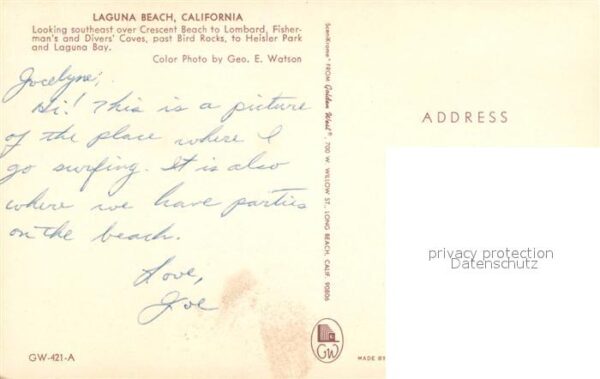 LAGUNA BEACH, CALIFORNIA
Looking southeast over Crescent Beach to Lombard, Fisher-
man's and Divers' Coves, past Bird Rocks, to Heisler Park
and Laguna Bay.
Color Photo by Geo. E. Watson
Jocelyne;
Hi! This is a picture
of the place where I
go surfing. It is also
where we have parties
on the beach.
Love,
Joe
GW-421-A
ScenKrome® FROM Golden West®, 700 W. WILLOW ST., LONG BEACH, CALIF. 90806
GW
MADE BY
ADDRESS
privacy protection
Datenschutz